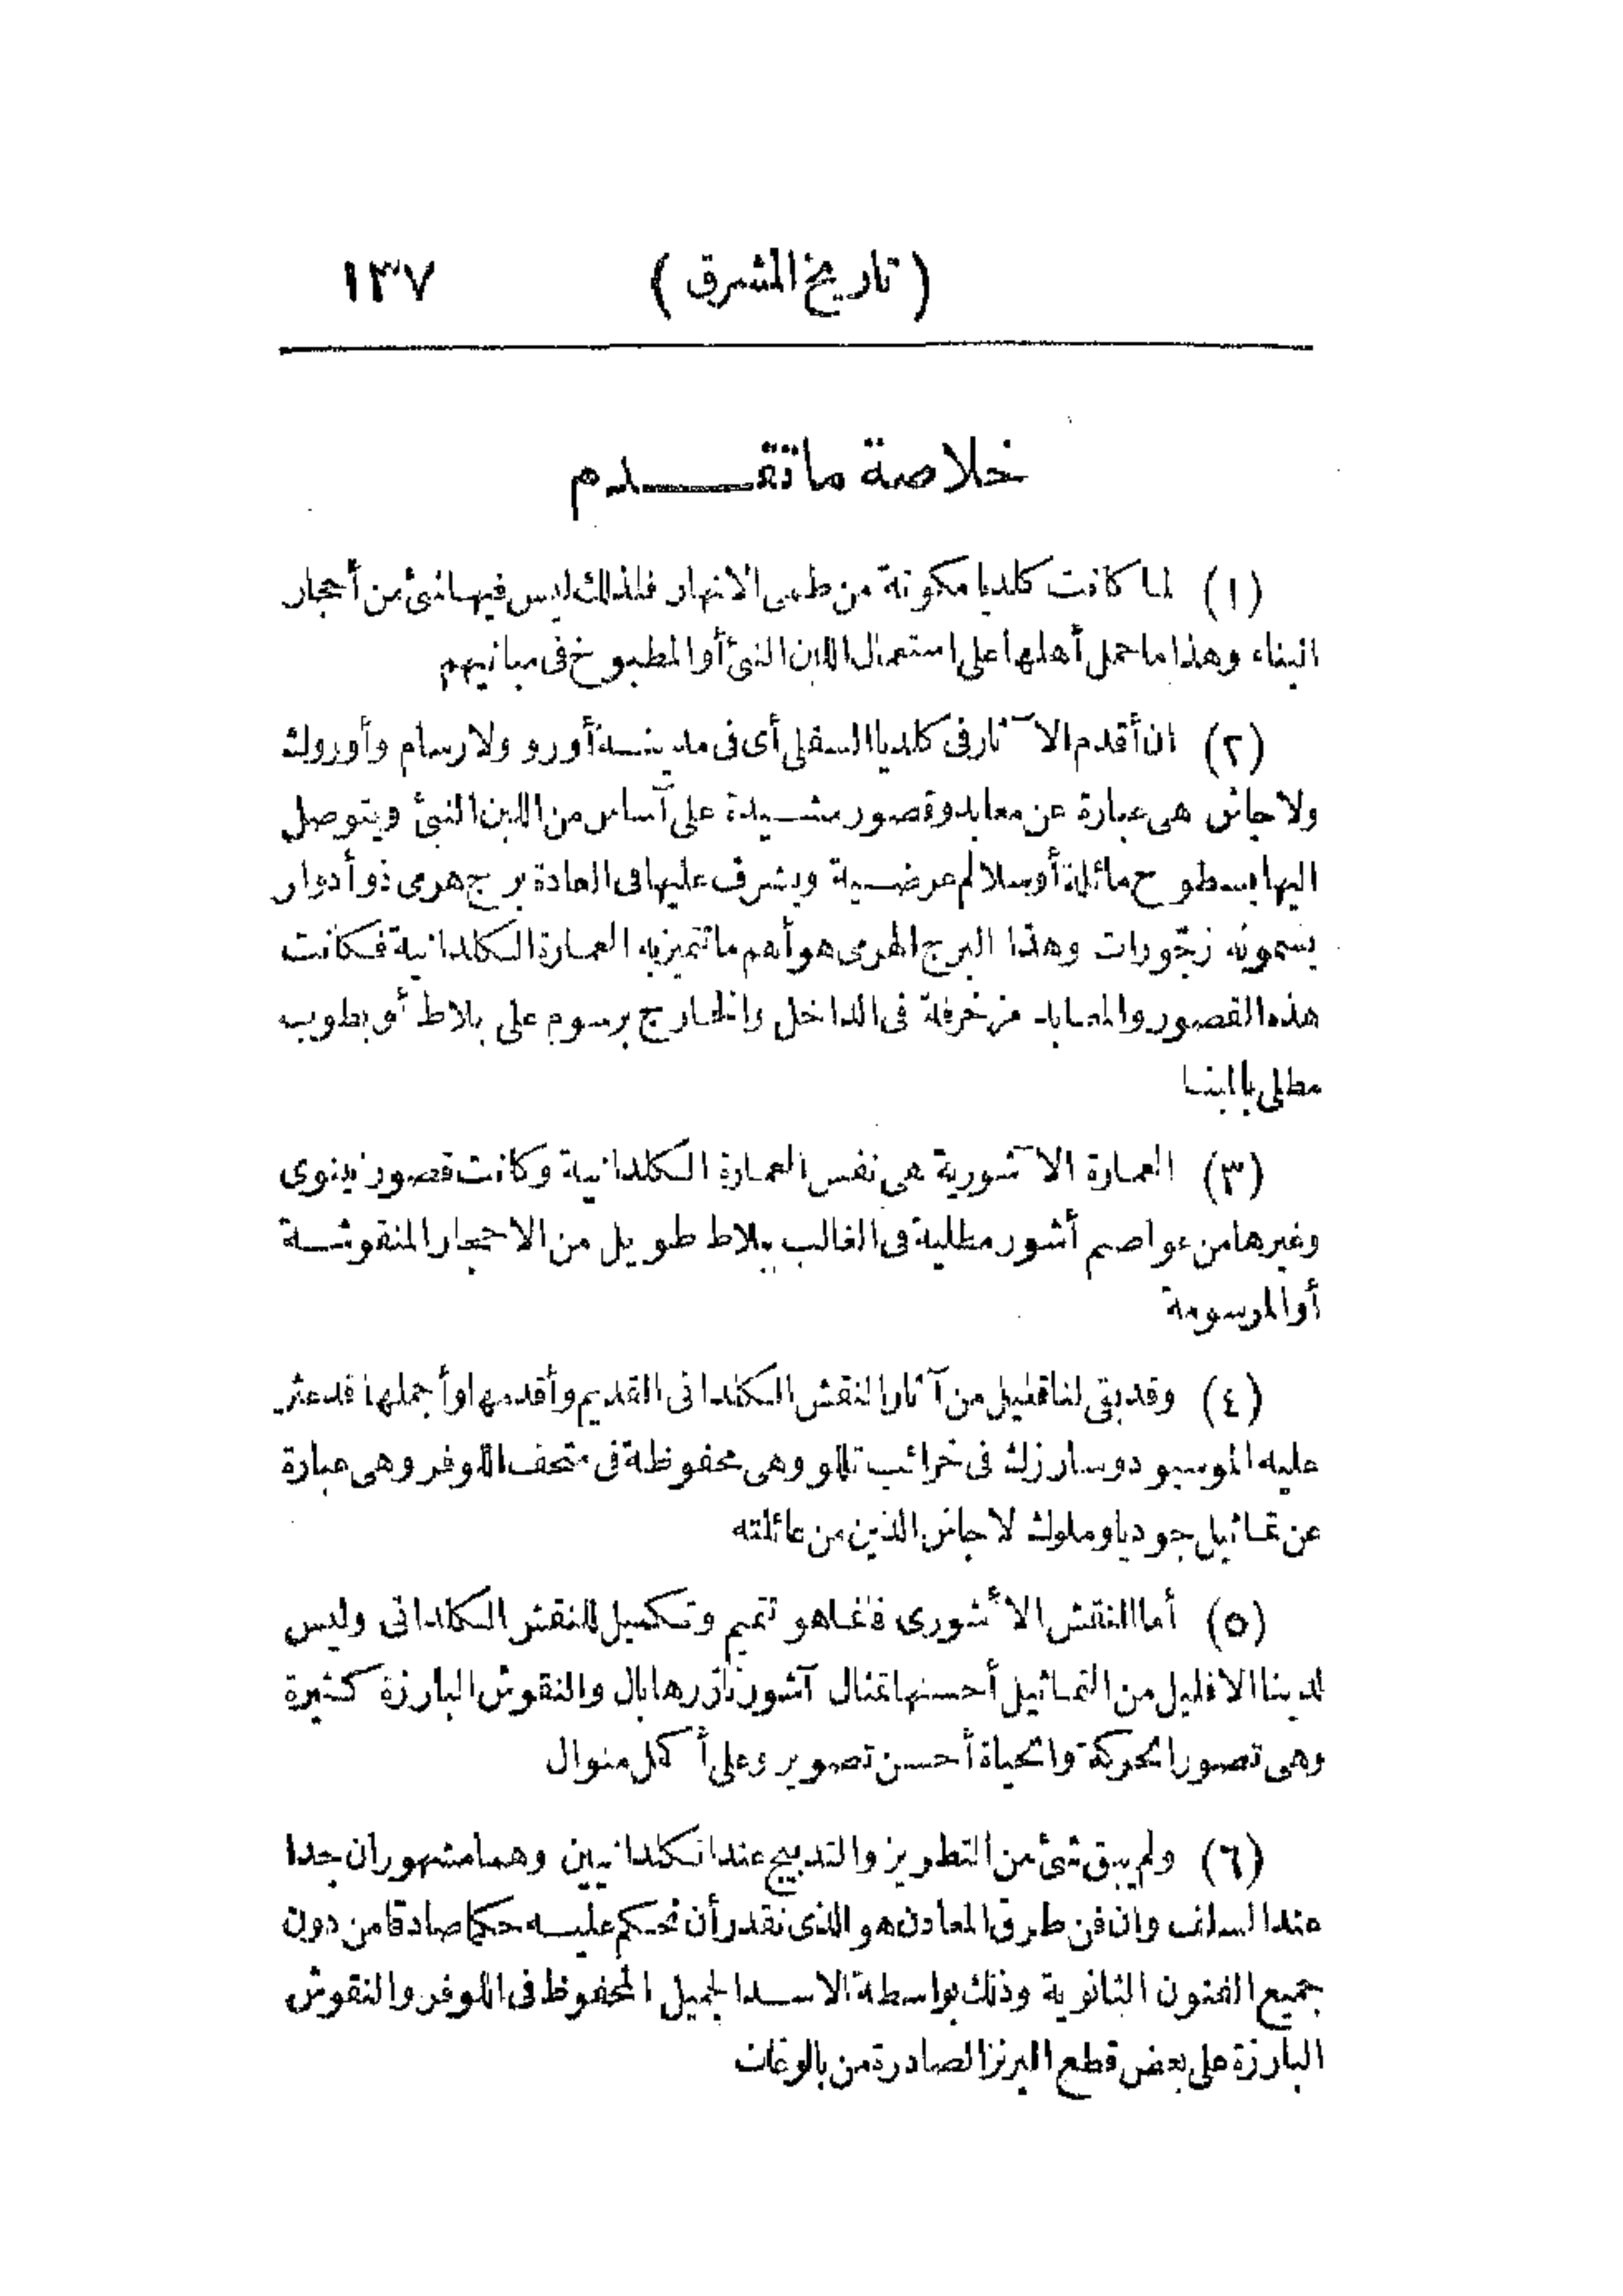 (تاريخ المشرق) ١٣٧
خلاصة ماتقدم
(١) لما كانت كلديا مكونة من طمى الانهار فلذلك ليس فيها شئ من أحجار
البناء وهذا ما حمل أهلها على استعمال اللبن النئ أو المطبوخ فى مبانيهم
(٢) ان أقدم الآثار فى كلديا السفلى أى فى مدينة أورو ولارسام وأوروك
ولاجاش هى عبارة عن معابد وقصور مشيدة على آساس من اللبن النئ ويتوصل
اليها بسطوح مائلة أو سلالم عرضية ويشرف عليها فى العادة برج هرمى ذو أدوار
يسمونه زجّورات وهذا البرج الهرمى هو أهم ما تتميز به العمارة الكلدانية فكانت
هذه القصور والمعابد مزخرفة فى الداخل والخارج برسوم على بلاط أو بطوب
مطلى بالمينا
(٣) العمارة الآشورية هى نفس العمارة الكلدانية وكانت قصور نينوى
وغيرها من عواصم أشور مطلية فى الغالب ببلاط طويل من الاحجار المنقوشة
أو المرسومة
(٤) وقد بقى لنا قليل من آثار النقش الكلدانى القديم وأقدمها وأجملها قد عثر
عليه الموسيو دوسارزك فى خرائب تللو وهى محفوظة فى متحف اللوفر وهى عبارة
عن تماثيل جوديا وملوك لاجاش الذين من عائلته
(٥) أما النقش الأشورى فانما هو تتميم وتكميل للنقش الكلدانى وليس
لدينا الا قليل من التماثيل أحسنها تمثال آشور نازرهابال والنقوش البارزة كثيرة
وهى تصور الحركة والحياة أحسن تصوير وعلى أكمل منوال
(٦) ولم يبق شئ من التطريز والتدبيج عند الكلدانيين وهما مشهوران جدا
عند السلف وان فن طرق المعادن هو الذى نقدر أن نحكم عليه حكما صادقا من دون
جميع الفنون الثانوية وذلك بواسطة الاسد الجميل المحفوظ فى اللوفر والنقوش
البارزة على بعض قطع البرنز الصادرة من بالوغات